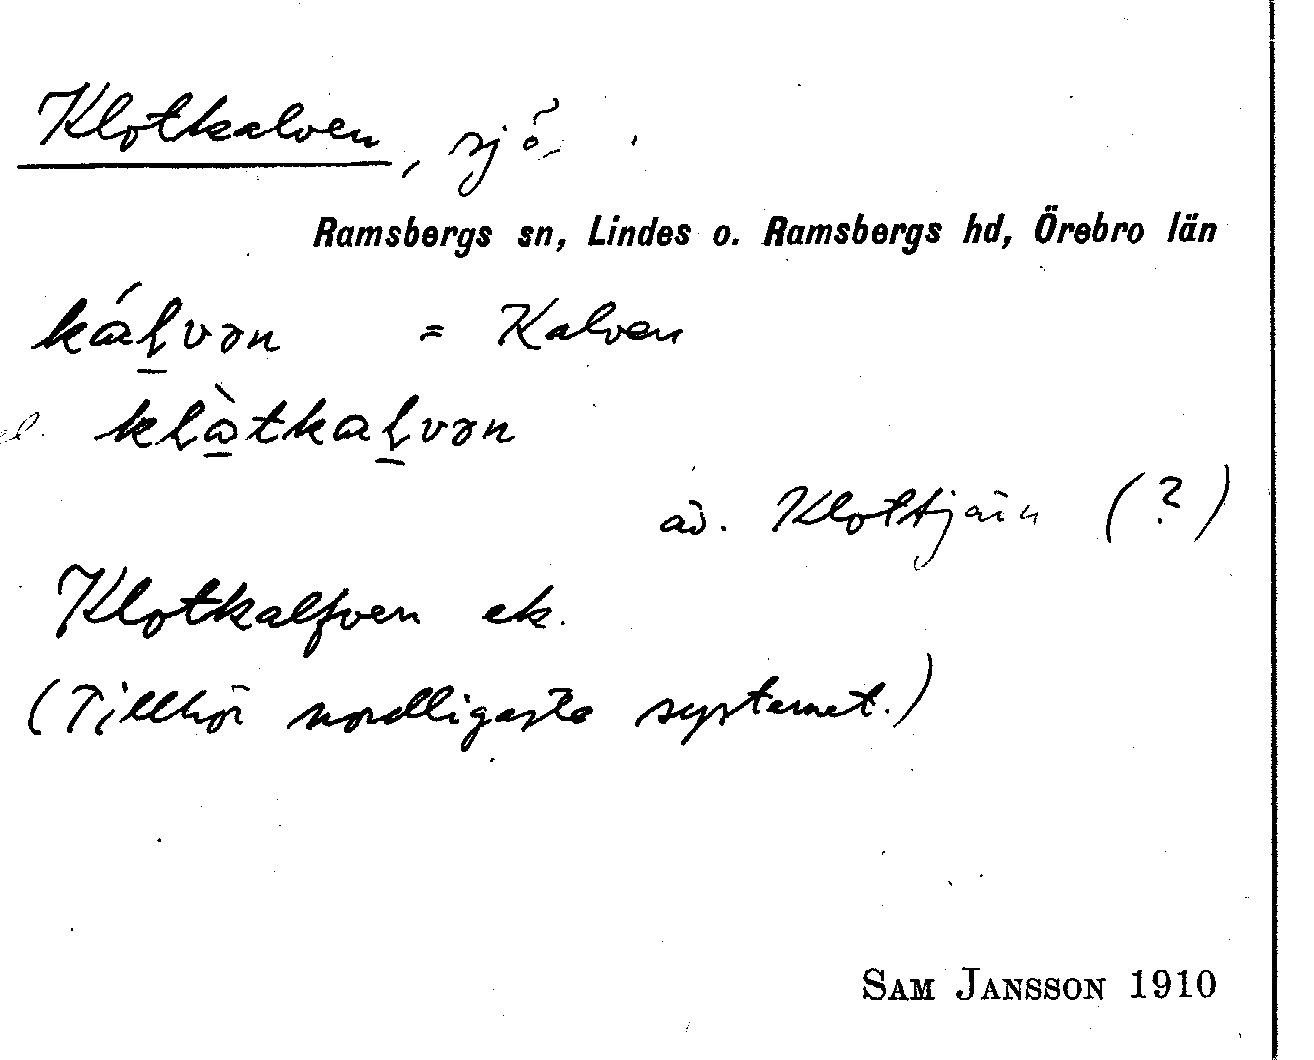 Klotkalven, sjö
Ramsbergs sn, Lindes o. Ramsbergs hd, Örebro län
kálvən = Kalven
el. klàtkalvən
av. Klottjärn (?)
Klotkalfven ek.
(Tillhör nordligaste systemet.)
SAM JANSSON 1910